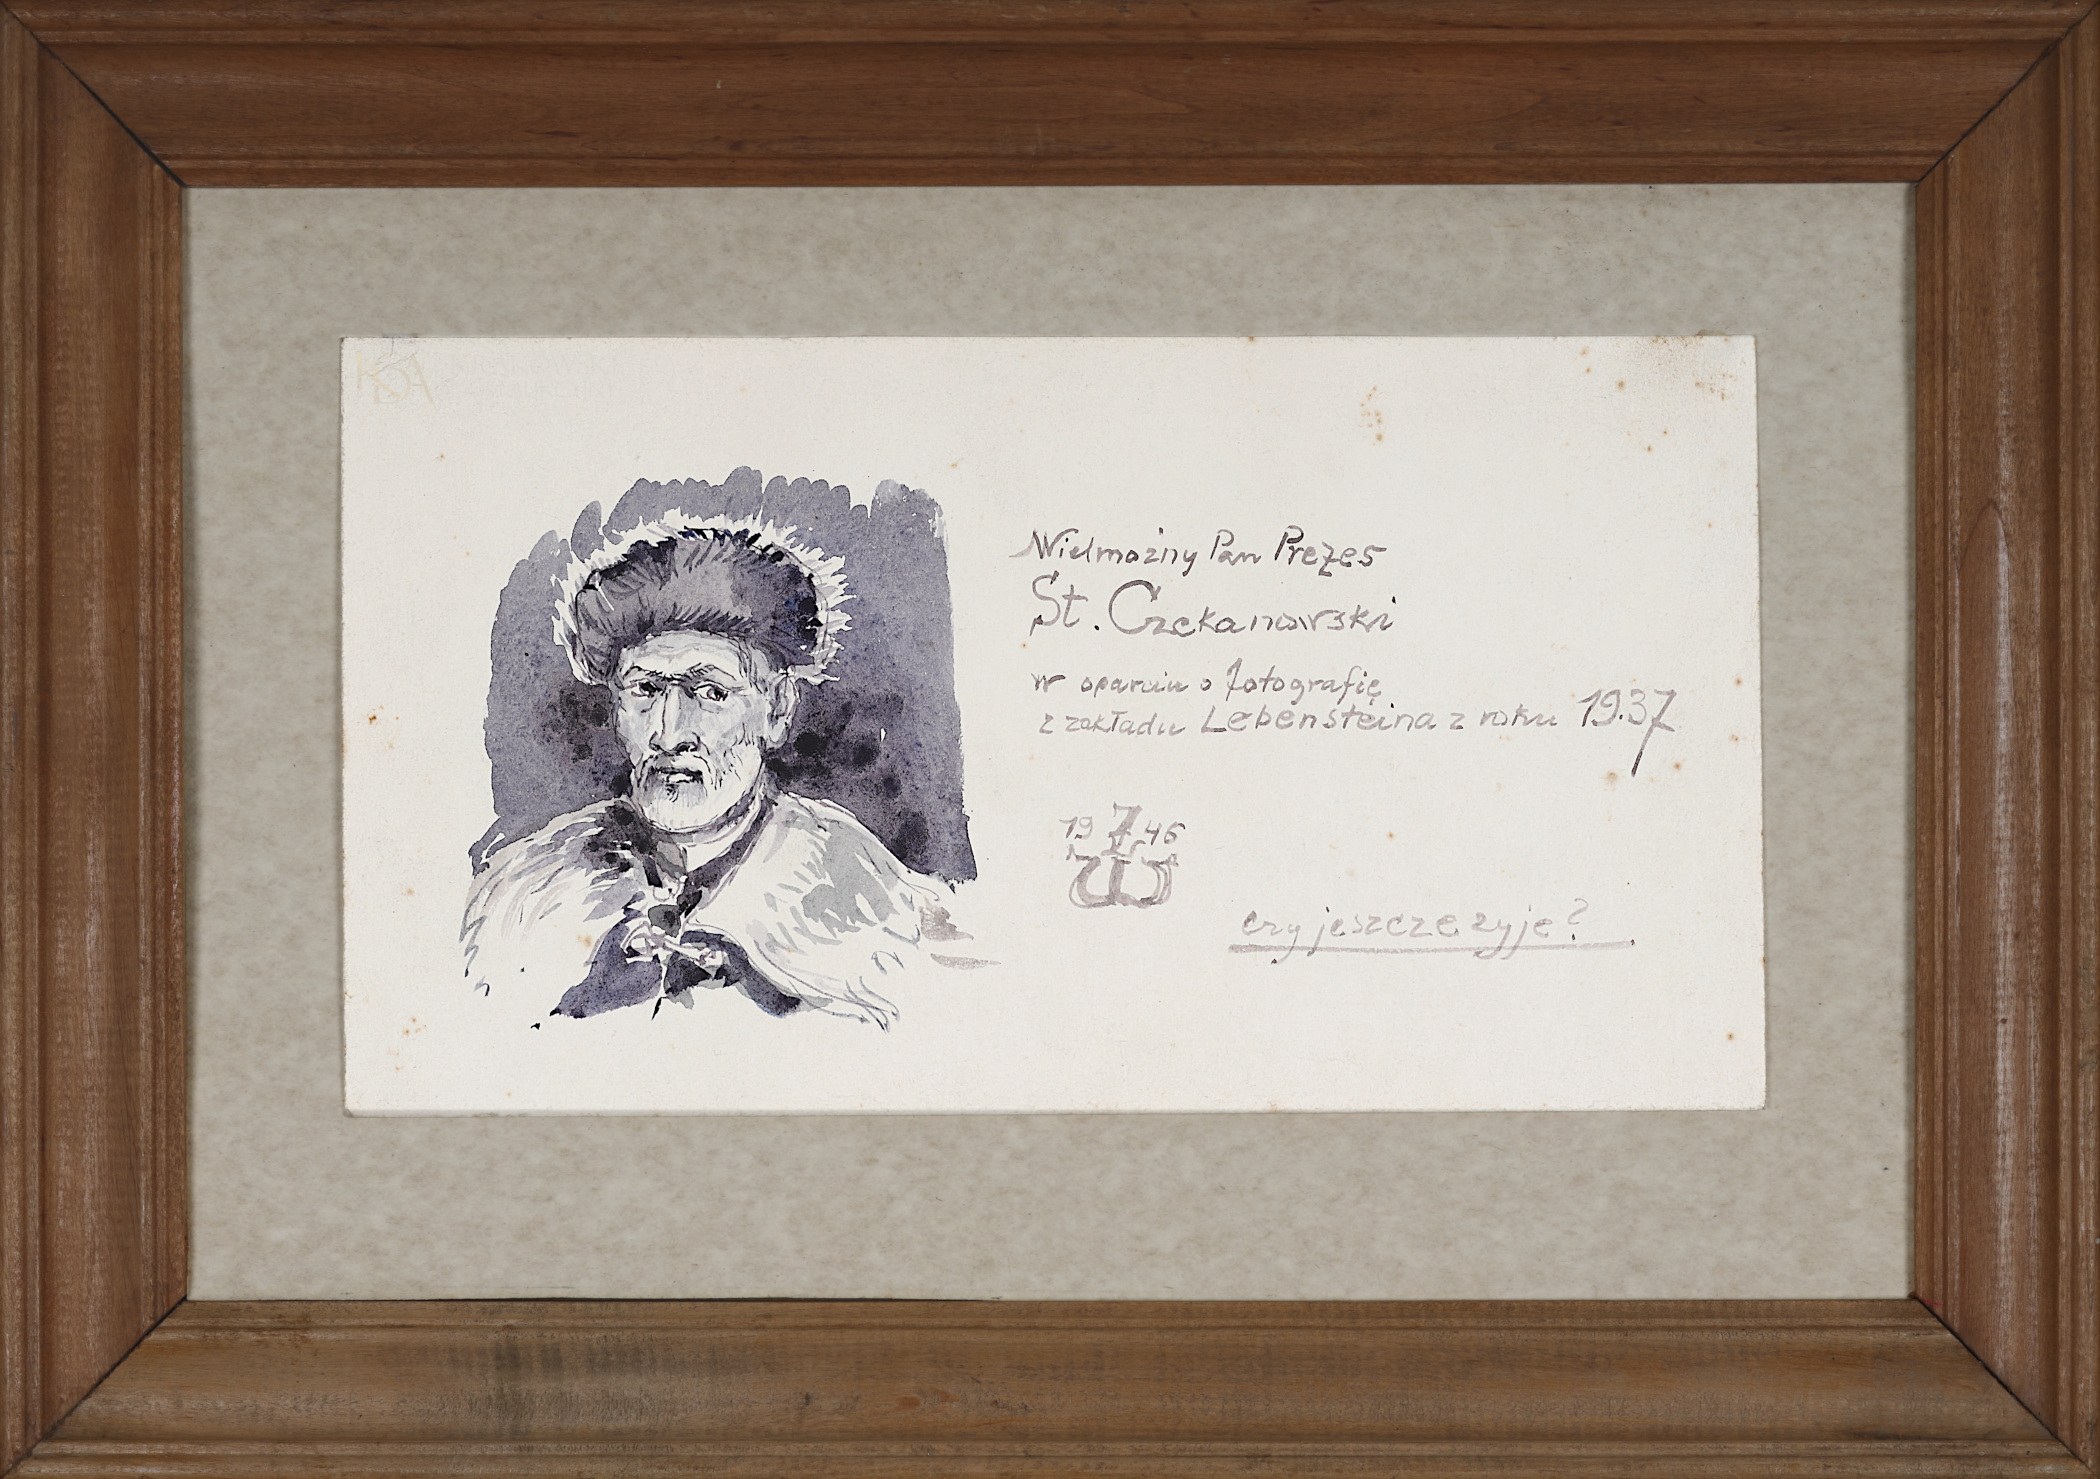 Wielmożny Pan Prezes
St. Czekanowski
w oparciu o fotografię
z zakładu Lebensteina z roku 1937
19 46
czy jeszcze zyje?